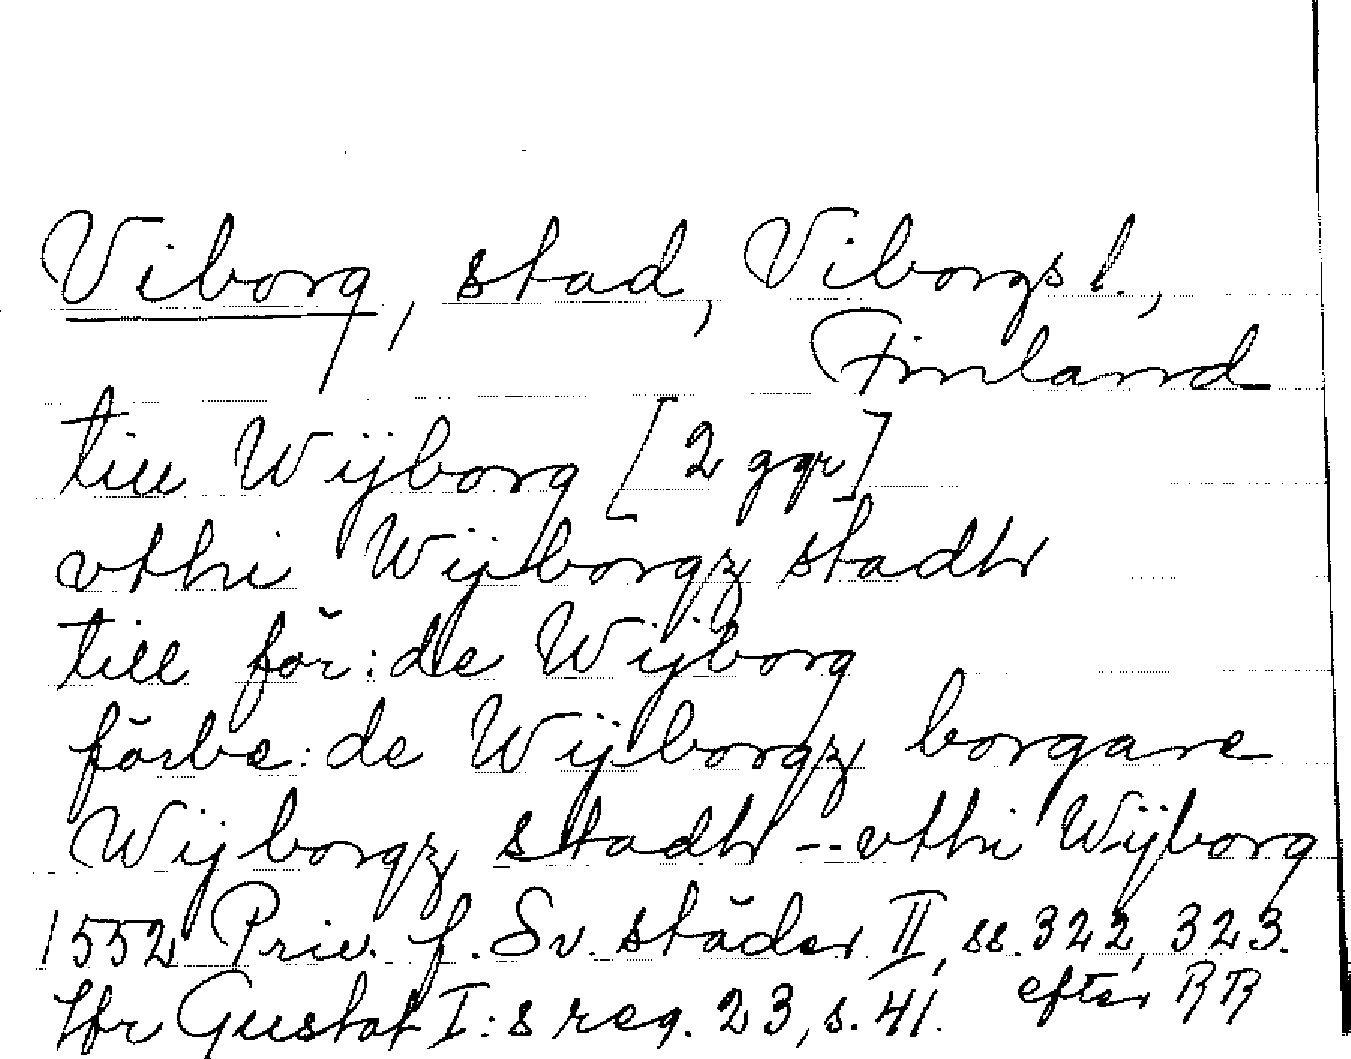 Viborg, stad, Viborgs l.,
Finland
till Wijborg [2 ggr]
vthi Wijborgz stadh
till för:de Wijborg
förbe:de Wijborgz borgare
Wijborgz stadh -- vthi Wijborg
1552 Priv. f. Sv. städer II, ss. 322, 323.
Jfr Gustaf I:s reg. 23, s. 41. efter RR